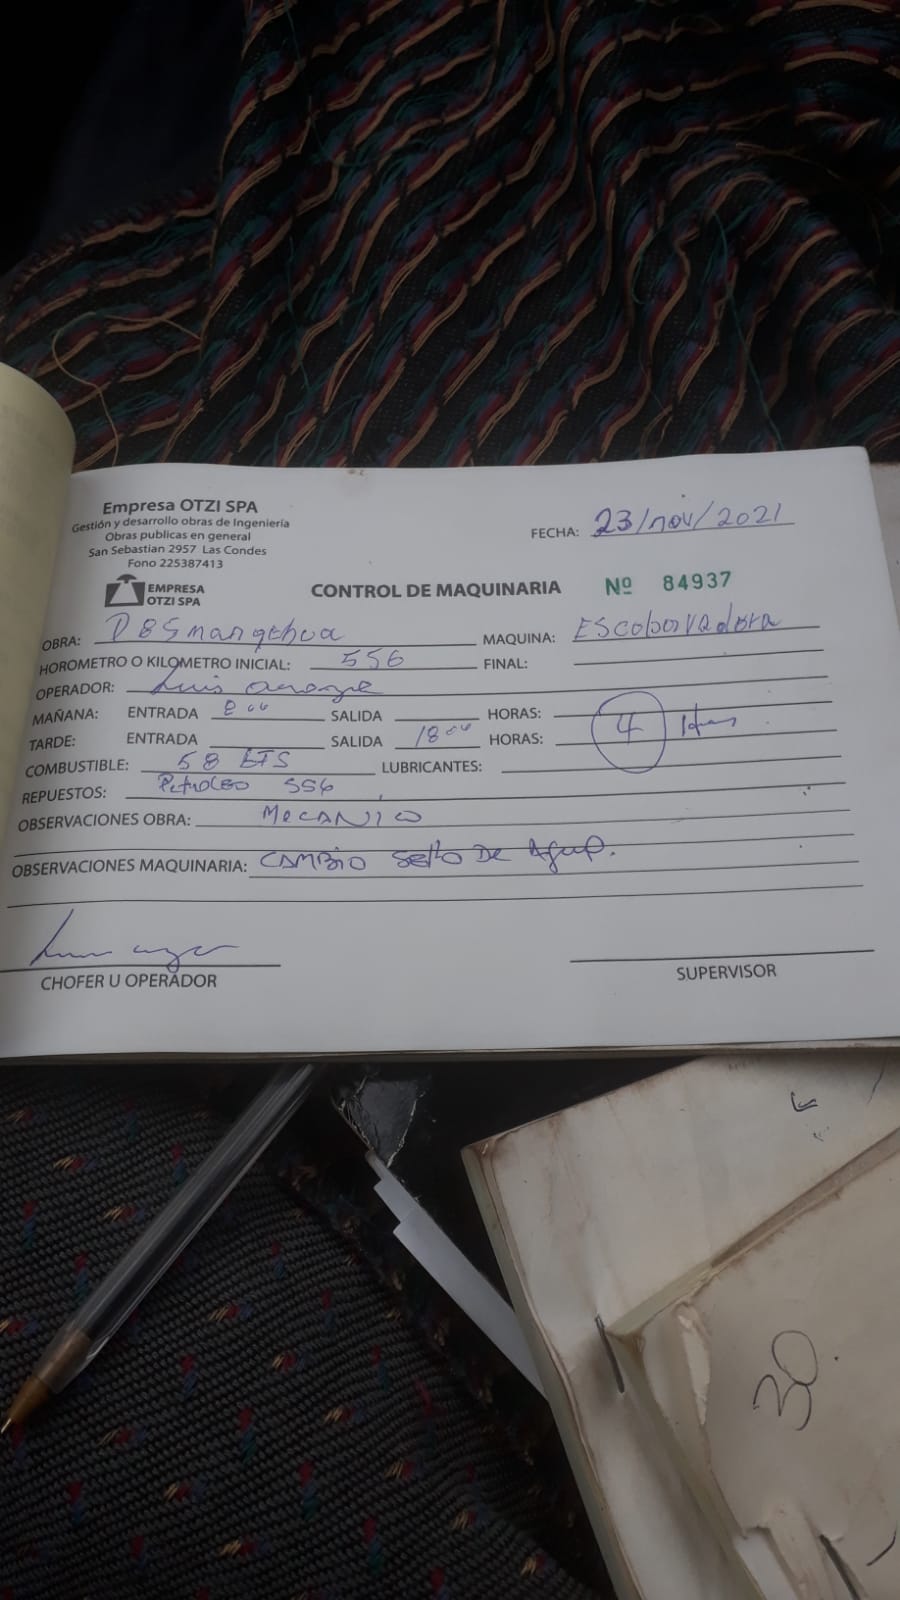 Empresa OTZI SPA
Gestión y desarrollo obras de Ingeniería
Obras publicas en general
San Sebastian 2957 Las Condes
Fono 225387413
EMPRESA
OTZI SPA
FECHA: 23/nov/2021
CONTROL DE MAQUINARIA Nº 84937
OBRA: MAQUINA:
HOROMETRO O KILOMETRO INICIAL: 556 FINAL:
OPERADOR: Luis
MAÑANA: ENTRADA 8 00 SALIDA HORAS:
TARDE: ENTRADA SALIDA 18 00 HORAS: 4
COMBUSTIBLE: 58 LTS LUBRICANTES:
REPUESTOS: Petroleo 556
OBSERVACIONES OBRA: MECANICO
OBSERVACIONES MAQUINARIA: CAMBIO Sello De Agua.
CHOFER U OPERADOR SUPERVISOR
30